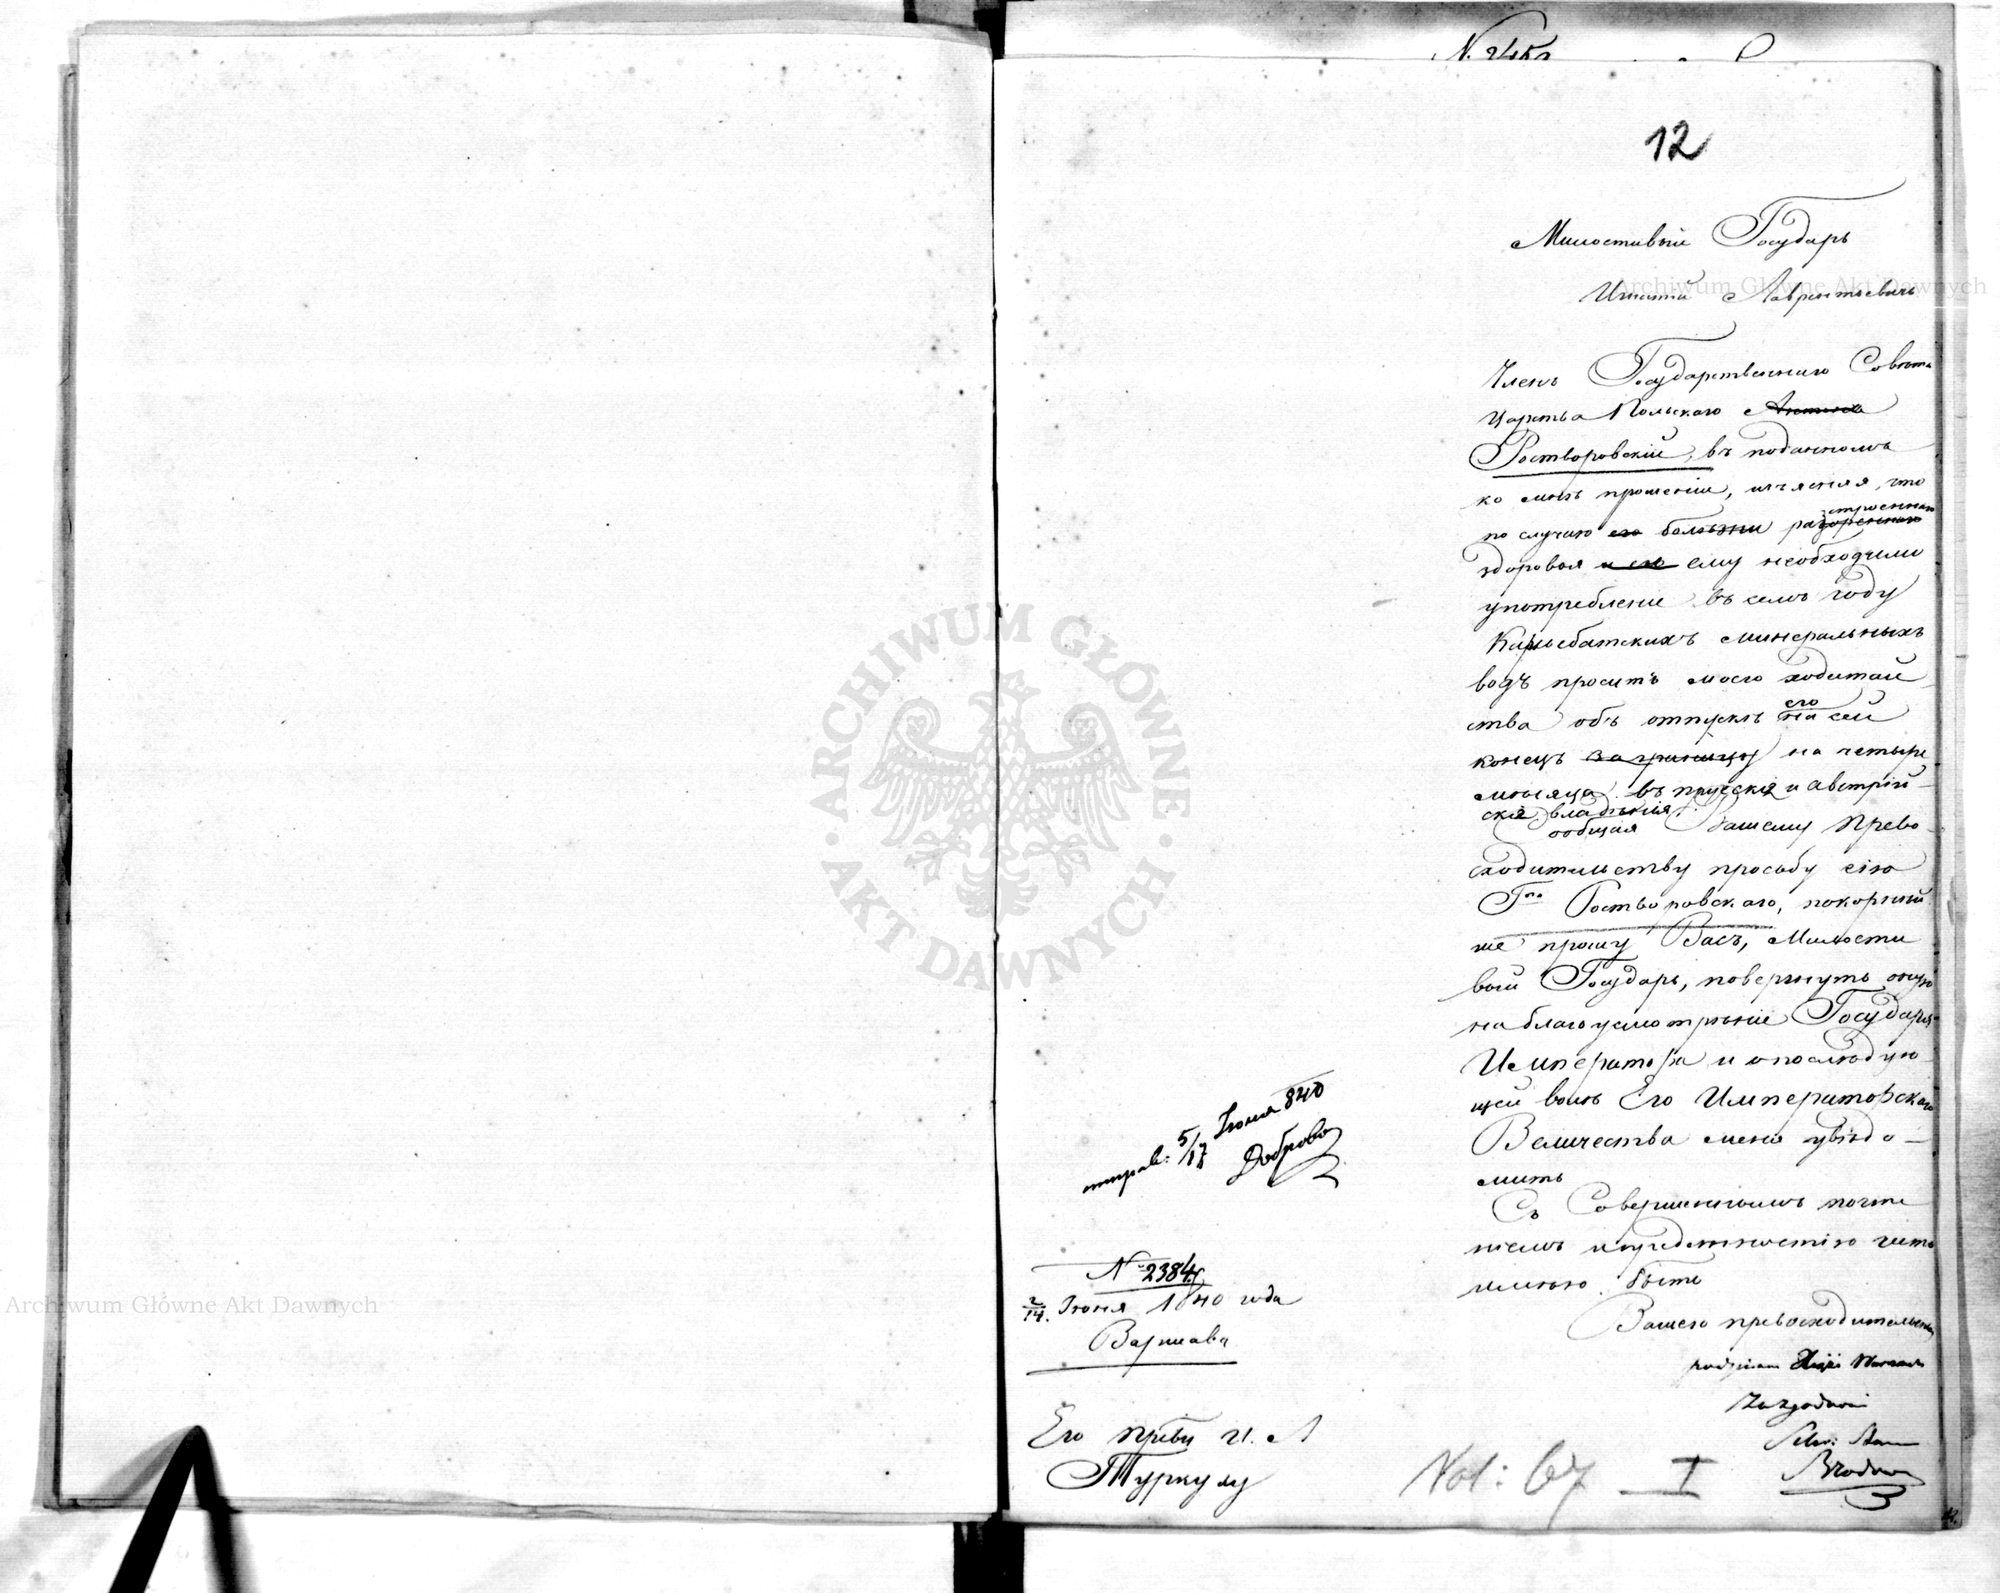 N. 2452
12
Милостивый Государь
Игнатій Лаврентьевичь
Членъ Государственнаго Совѣта
Царства Польскаго Антонъ
Ростворовскій, въ поданномъ
ко мнѣ прошеніи, изъясняя, что
по случаю его болѣзни разстроеннаго
здоровья и его ему необходимо
употребленіе въ семъ году
Карлсбатскихъ минеральныхъ
водъ проситъ моего ходатай
ства объ отпускѣ его на сей
конецъ за границу на четыре
мѣсяца въ прусскія и австрій-
скія владѣнія.
Сообщая Вашему Прево-
сходительству просьбу сію
Гна Ростворовскаго, покорнѣй
ше прошу Васъ, Милости
вый Государь, повергнуть оную
на благоусмотрѣніе Государя
Императора и о послѣдую
щей волѣ Его Императорскаго
Величества меня увѣдо-
мить
Съ Совершеннымъ почте
ніемъ и преданностію честь
имѣю быть
Вашего превосходительства
отправ: 5/17 Іюня 840
Доброво
N 2384.
2/14. Іюня 1840 года
Варшава
Его Превы И. Л
Туркулу
podpisan Xiąże Warszaws
Za zgodność
Vol: 67 I
Archiwum Główne Akt Dawnych
ARCHIWUM GŁÓWNE
AKT DAWNYCH
Archiwum Główne Akt Dawnych